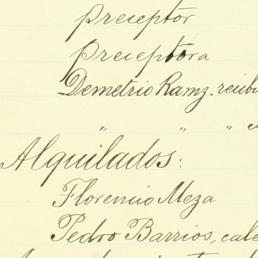 preceptor
preceptora
Demetrio Ramz. recib
" " "
Alquilados:
Florencio Meza
Pedro Barrios, cale